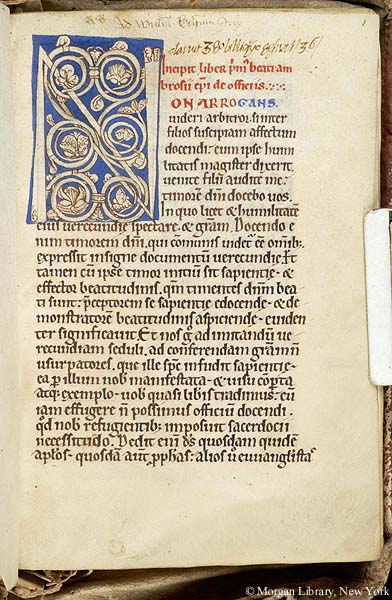 Incipit liber p̄m' beati am
brosii ep̄i de officiis.
NON ARROGANS.
uideri arbitror. si inter
filios suscipiam affectum
docendi. cum ipse humi
litatis magister dixerit.
uenite filii audite me.
timorē dn̄i docebo uos.
In quo licet & humilitatē
eius uerecundie spectare. & gr̄am. Docendo e
nim timorem dn̄i, qui cōmunis uidet' ēē om̄ib;
expressit insigne documentū uerecundie. Et
tamen cū ipse timor initiū sit sapientie. &
effector beatitudinis. qm̄ timentes dn̄m bea
ti sunt: p̄ceptorem se sapientie edocende. & de
monstratorē beatitudinis aspiciende. euiden
ter significauit. Et nos g° ad imitandū ue
recundiam seduli, ad conferendam gram̄ n̄
usurpatores. que ille sp̄c infudit sapientie.
ea ꝑ illum nob̄ manifestata. & uisu cōp̄ta
atq; exemplo. uob̄ quasi lib̄is tradimus: cū
iam effugere n̄ possimus officiū docendi.
qd̄ nob̄ refugientib; imposuit sacerdotii
necessitudo. Dedit enī ds̄ quosdam quidē
ap̄los. quosdam aut̄ ꝓphas. alios u° euuangl̄ista
© Morgan Library, New York